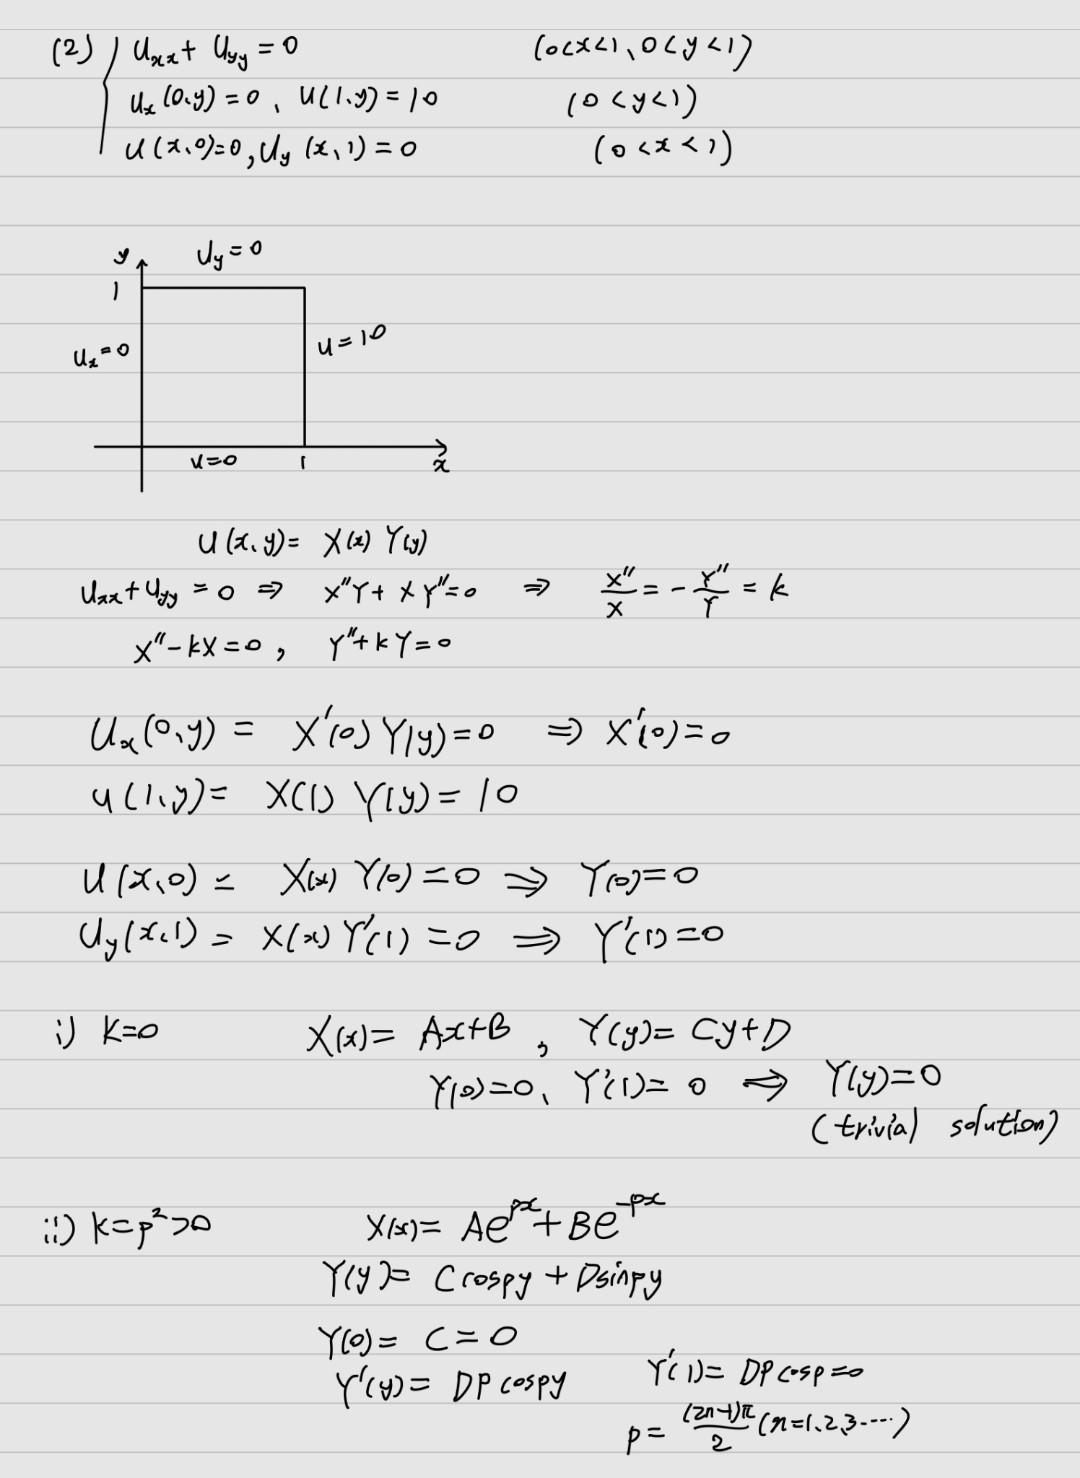 (2) { Uxx + Uyy = 0 (0<x<1, 0<y<1)
Ux(0,y) = 0, U(1,y) = 10 (0<y<1)
U(x,0)=0, Uy(x,1) = 0 (0<x<1)
y Uy=0
1
Ux=0 U=10
U=0 1 x
U(x,y) = X(x) Y(y)
Uxx+Uyy = 0 ⇒ X''Y + XY''=0 ⇒ X''/X = -Y''/Y = k
X''-kX=0, Y''+kY=0
Ux(0,y) = X'(0) Y(y)=0 ⇒ X'(0)=0
u(1,y) = X(1) Y(y) = 10
U(x,0) = X(x) Y(0)=0 ⇒ Y(0)=0
Uy(x,1) = X(x) Y'(1) = 0 ⇒ Y'(1)=0
i) K=0 X(x)= Ax+B, Y(y)= Cy+D
Y(0)=0, Y'(1)= 0 ⇒ Y(y)=0
(trivial solution)
ii) k=p²>0 X(x)= Ae^px + Be^-px
Y(y)= C cospy + Dsinpy
Y(0)= C=0
Y'(y)= DP cospy Y'(1)= DP cosp=0
p= (2n-1)π/2 (n=1,2,3····)